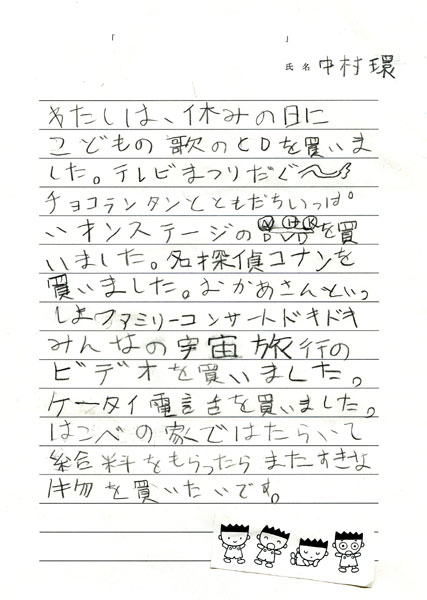 「　　　　　　　　」
氏名 中村環
わたしは、休みの日に
こどもの歌のCDを買いま
した。テレビまつりだぐ〜
チョコランタンとともだちいっぱ
いオンステージのNHKDVDを買
いました。名探偵コナンを
買いました。おかあさんといっ
しょファミリーコンサートドキドキ
みんなの宇宙旅行の
ビデオを買いました。
ケータイ電話を買いました。
はこべの家ではたらいて
給料をもらったらまたすきな
物を買いたいです。